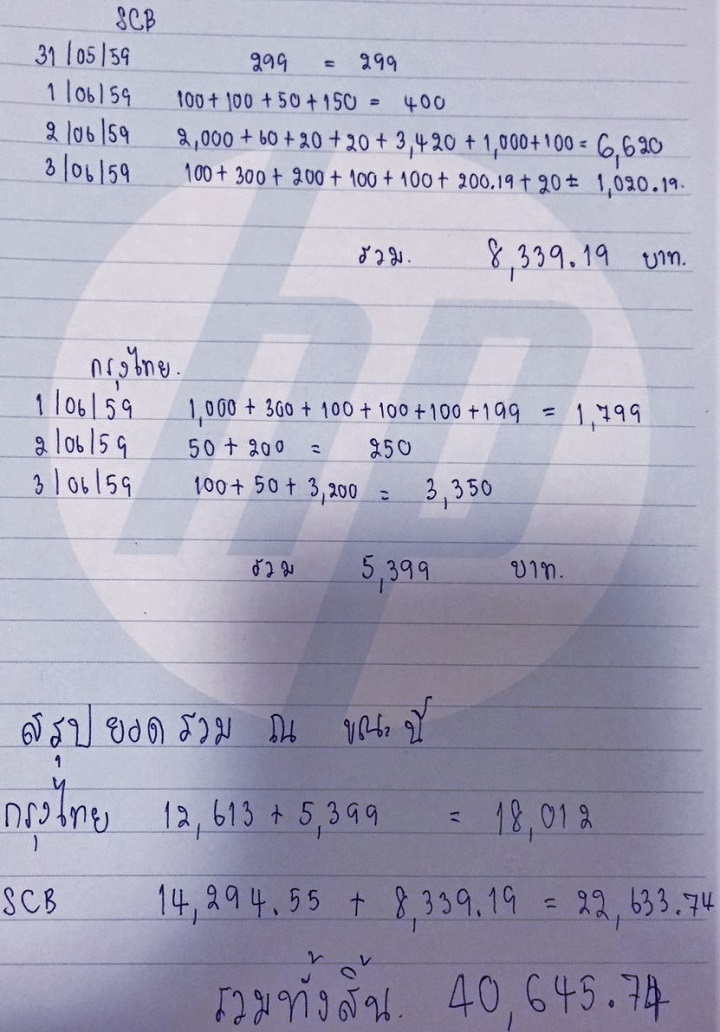 SCB
31/05/59 299 = 299
1/06/59 100+100+50+150 = 400
2/06/59 2,000+60+20+20+3,420+1,000+100 = 6,620
3/06/59 100+300+200+100+100+200.19+20= 1,020.19.
รวม. 8,339.19 บาท.
กรุงไทย.
1/06/59 1,000+300+100+100+100+199 = 1,799
2/06/59 50+200 = 250
3/06/59 100+50+3,200 = 3,350
รวม 5,399 บาท.
สรุป ยอด รวม ณ ขณะ นี้
กรุงไทย 12,613 + 5,399 = 18,012
SCB 14,294.55 + 8,339.19 = 22,633.74
รวมทั้งสิ้น. 40,645.74
hp